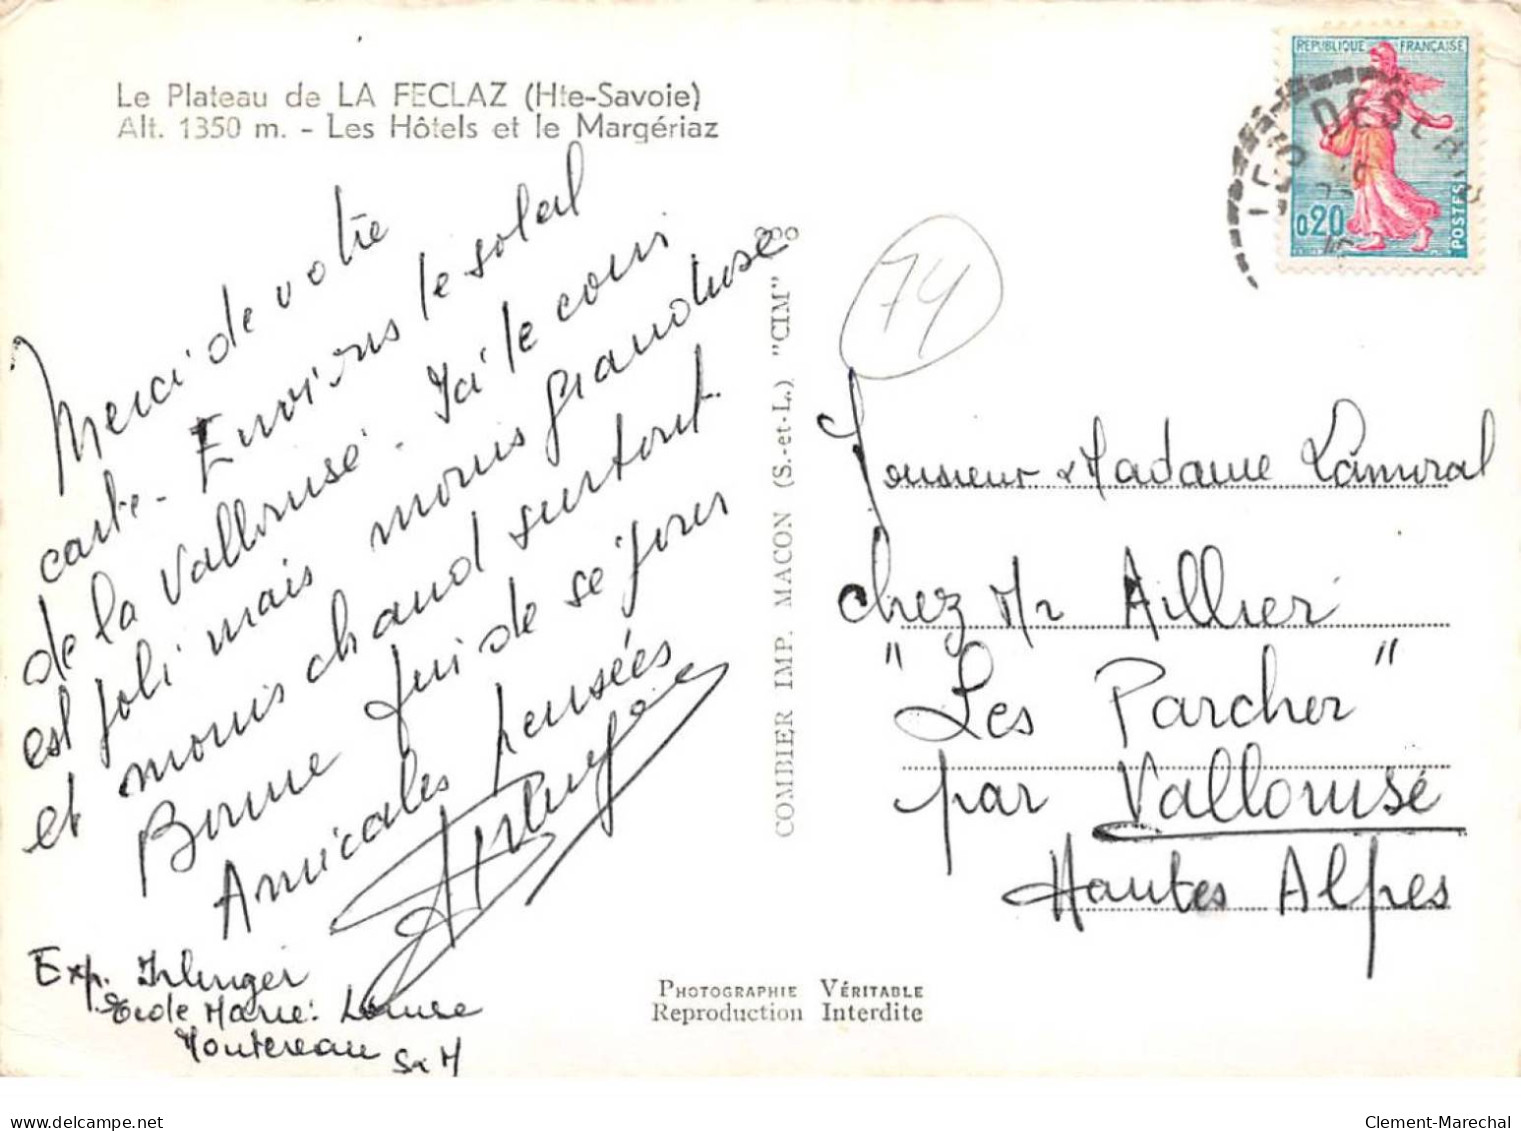 Le Plateau de LA FECLAZ (Hte-Savoie)
Alt. 1350 m. - Les Hôtels et le Margériaz
Merci de votre
carte. Envions le soleil
de la Vallouise. Ici le
est joli mais moins grandiose
et moins chaud surtout
Bonne fin de séjour
Amicales pensées
Exp.
Ecole Marie-Louise
Montereau S & M
COMBIER IMP. MACON (S.-et-L.) "CIM"
PHOTOGRAPHIE VÉRITABLE
Reproduction Interdite
REPUBLIQUE FRANÇAISE
0,20
POSTES
LES DESERTS
74
Monsieur & Madame Lamoral
chez Mr Aillier
"Les Parcher"
par Vallouise
Hautes Alpes
Clement-Marechal
delcampe.net